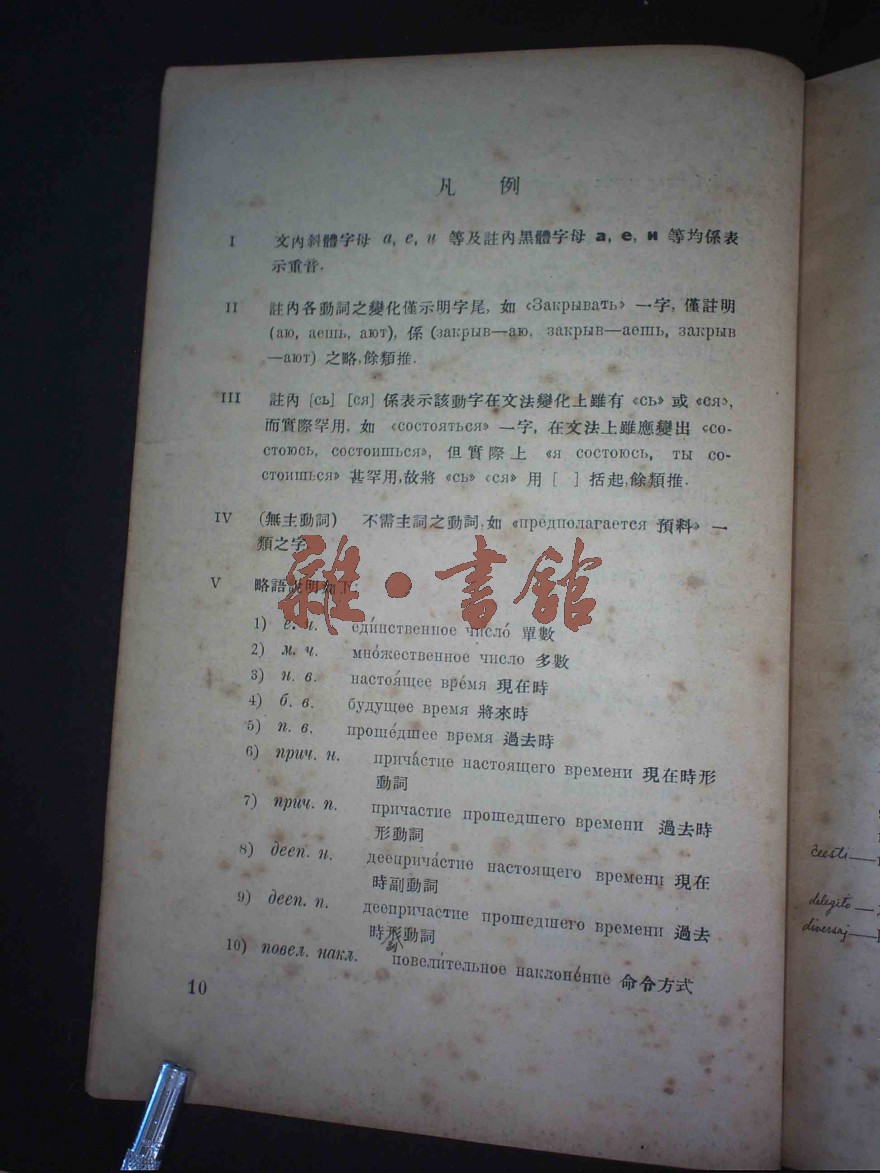 凡 例
I 文內斜體字母 а, е, и 等及註內黑體字母 а, е, и 等均係表
示重音.
II 註內各動詞之變化僅示明字尾, 如 «Закрывать» 一字, 僅註明
(аю, аешь, ают), 係 (закрыв—аю, закрыв—аешь, закрыв
—ают) 之略,餘類推.
III 註內 [сь] [ся] 係表示該動字在文法變化上雖有 «сь» 或 «ся»,
而實際罕用, 如 «состояться» 一字, 在文法上雖應變出 «со-
стоюсь, состоишься», 但實際上 «я состоюсь, ты со-
стоишься» 甚罕用,故將 «сь» «ся» 用 [ ] 括起,餘類推.
IV (無主動詞) 不需主詞之動詞,如 «предполагается 預料» 一
類之字
V 略語說明如下:
雜·書館
1) е. ч. еди́нственное число́ 單數
2) м. ч. мно́жественное число 多數
3) н. в. настоя́щее вре́мя 現在時
4) б. в. бу́дущее время 將來時
5) п. в. проше́дшее время 過去時
6) прич. н. прича́стие настоящего времени 現在時形
動詞
7) прич. п. причастие прошедшего времени 過去時
形動詞
8) дееп. н. дееприча́стие настоящего времени 現在
時副動詞
9) дееп. п. деепричастие прошедшего времени 過去
時形動詞
副
10) повел. накл. повели́тельное наклоне́ние 命令方式
10
ĉeesti—
delegito—
diversaj—